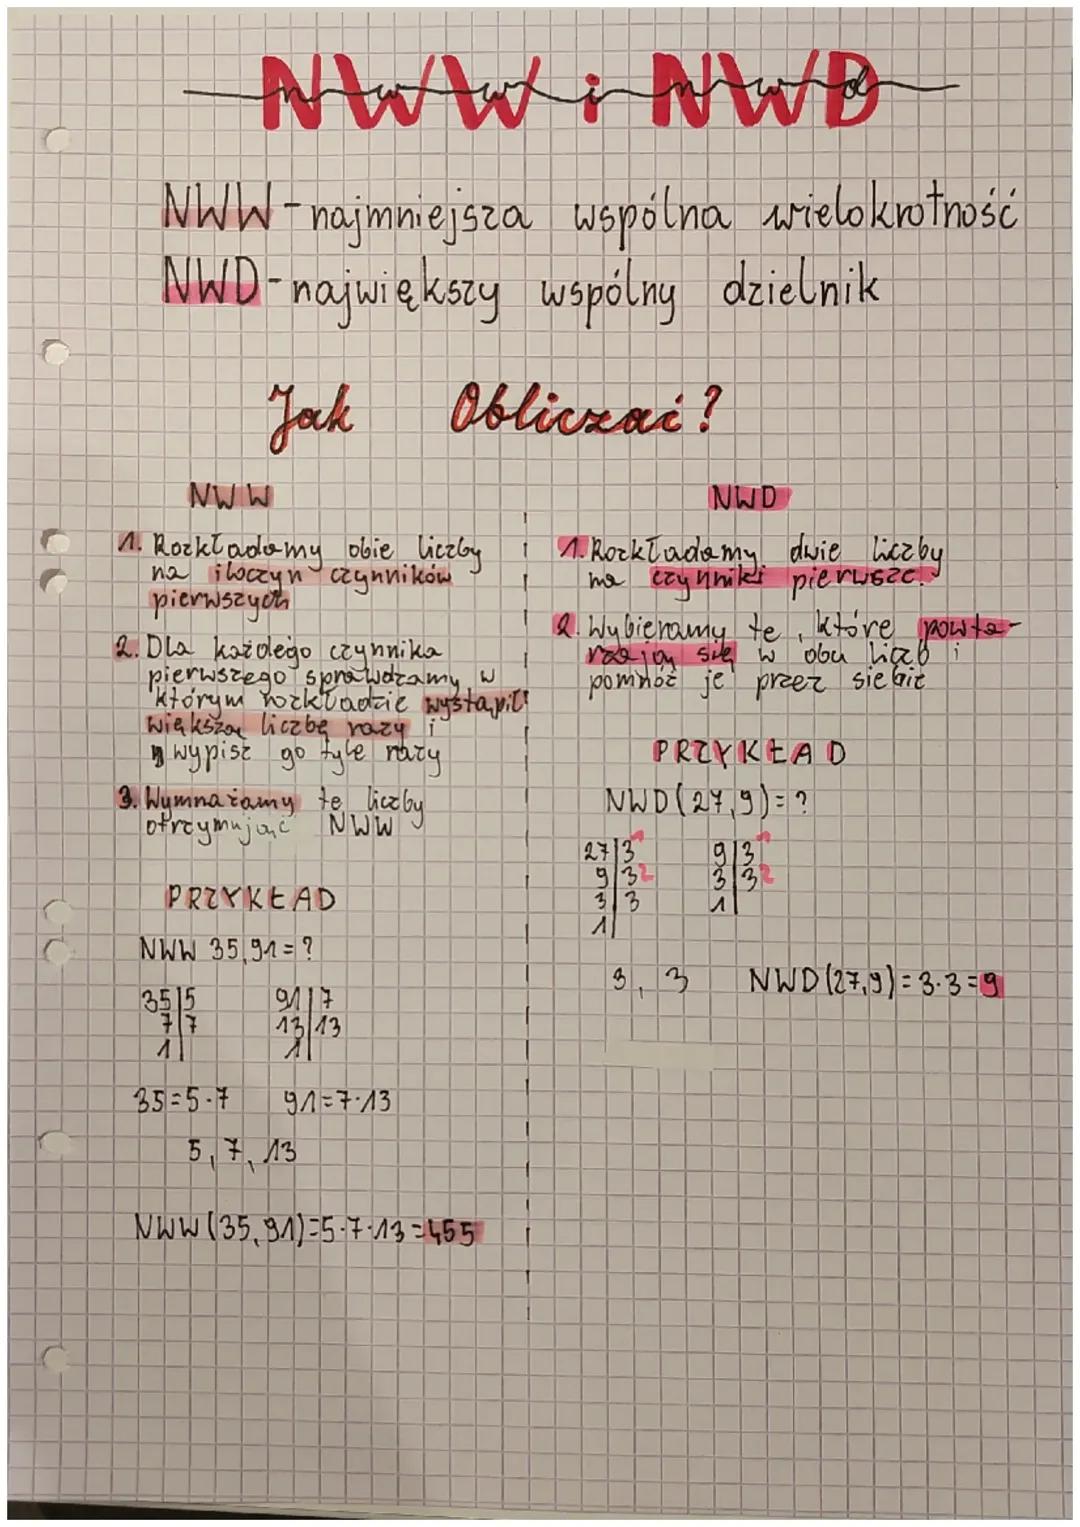 NWW i NWD
nww i nwd
NWW - najmniejsza wspólna wielokrotność
NWD - największy wspólny dzielnik
Jak Obliczać?
NWW
1. Rozkładamy obie liczby
na iloczyn czynników
pierwszych
2. Dla każdego czynnika
pierwszego sprawdzamy w
którym rozkładzie wystąpił
większą liczbę razy i
wypisz go tyle razy
3. Wymnażamy te liczby
otrzymując NWW
PRZYKŁAD
NWW 35,91=?
35|5 91|7
7|7 13|13
1| 1|
35=5·7 91=7·13
5, 7, 13
NWW (35,91)=5·7·13=455
NWD
1. Rozkładamy dwie liczby
na czynniki pierwsze.
2. Wybieramy te, które powta-
rzają się w obu liczb i
pomnóż je przez siebie
PRZYKŁAD
NWD(27,9)=?
27|3 1 9|3 1
9|3 2 3|3 2
3|3 1|
1|
3, 3 NWD(27,9)=3·3=9